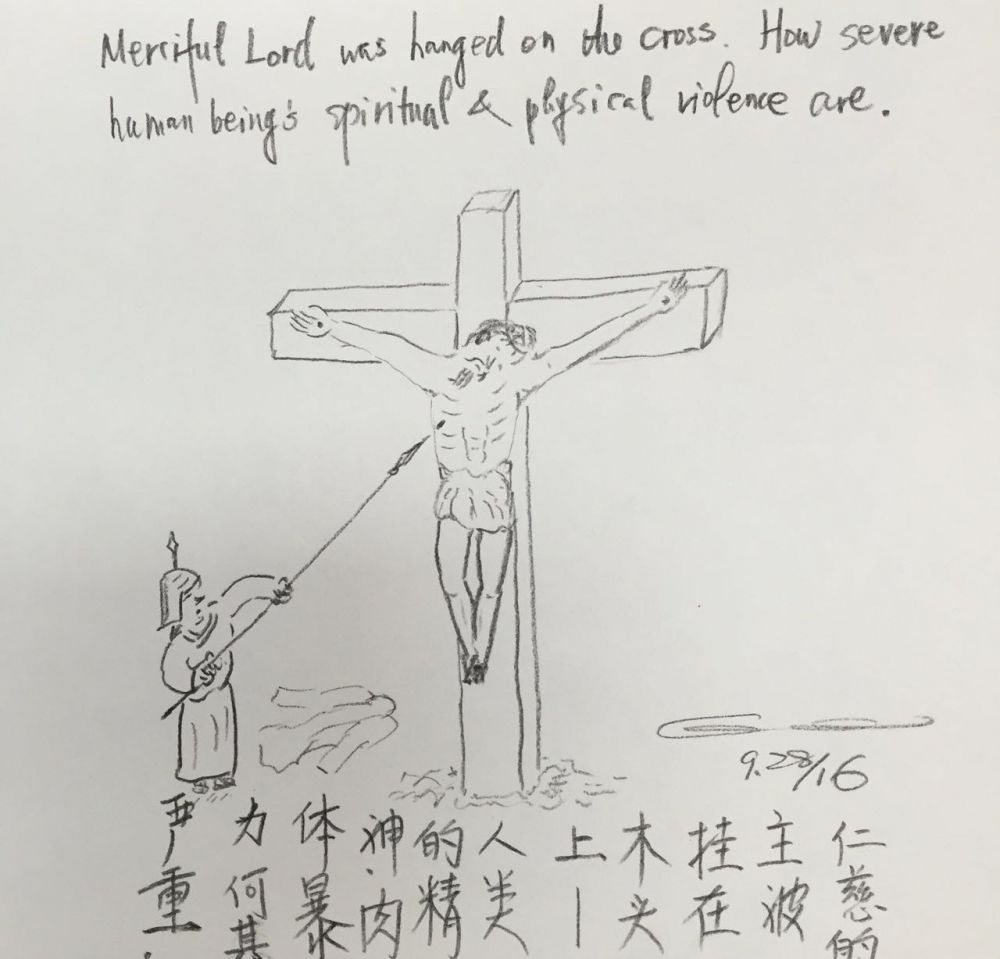 Merciful Lord was hanged on the cross. How severe
human being's spiritual & physical violence are.
9.28/16
仁慈的
主被
挂在
木头
上—
人类
的精
神.肉
体暴
力何其
严重.